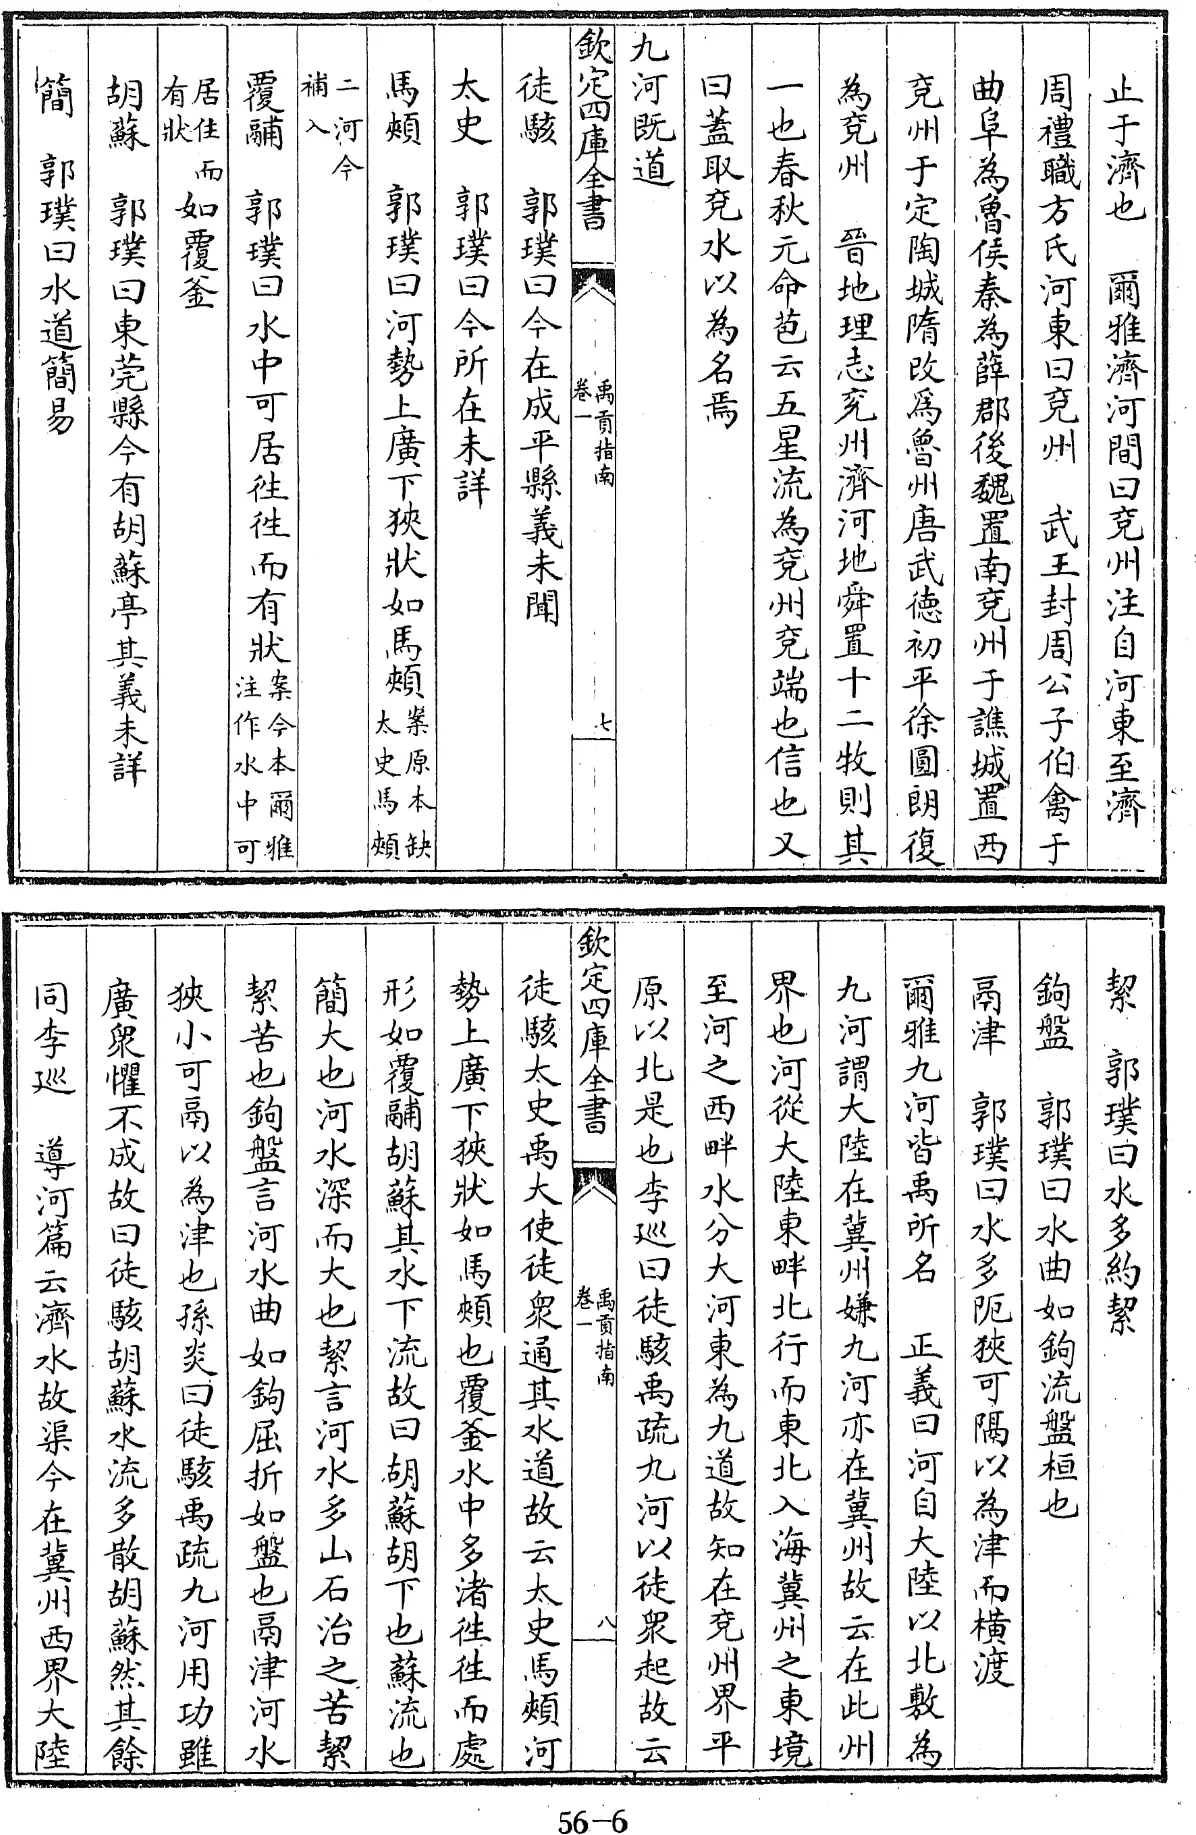 止于濟也　爾雅濟河間曰兗州注自河東至濟
周禮職方氏河東曰兗州　武王封周公子伯禽于
曲阜為魯侯秦為薛郡後魏置南兗州于譙城置西
兗州于定陶城隋改爲魯州唐武德初平徐圓朗復
為兗州　晉地理志兗州濟河地舜置十二牧則其
一也春秋元命苞云五星流為兗州兗端也信也又
曰蓋取兗水以為名焉
九河既道
欽定四庫全書
禹貢指南
卷一
七
徒駭　郭璞曰今在成平縣義未聞
太史　郭璞曰今所在未詳
馬頰　郭璞曰河勢上廣下狹狀如馬頰
案原本缺
太史馬頰
二河今
補入
覆鬴　郭璞曰水中可居往往而有狀
案今本爾雅
注作水中可
居住而
有狀
如覆釜
胡蘇　郭璞曰東莞縣今有胡蘇亭其義未詳
簡　郭璞曰水道簡易
絜　郭璞曰水多約絜
鉤盤　郭璞曰水曲如鉤流盤桓也
鬲津　郭璞曰水多阨狹可隔以為津而橫渡
爾雅九河皆禹所名　正義曰河自大陸以北敷為
九河謂大陸在冀州嫌九河亦在冀州故云在此州
界也河從大陸東畔北行而東北入海冀州之東境
至河之西畔水分大河東為九道故知在兗州界平
原以北是也李巡曰徒駭禹疏九河以徒衆起故云
欽定四庫全書
禹貢指南
卷一
八
徒駭太史禹大使徒衆通其水道故云太史馬頰河
勢上廣下狹狀如馬頰也覆釜水中多渚往往而處
形如覆鬴胡蘇其水下流故曰胡蘇胡下也蘇流也
簡大也河水深而大也絜言河水多山石治之苦絜
絜苦也鉤盤言河水曲如鉤屈折如盤也鬲津河水
狹小可鬲以為津也孫炎曰徒駭禹疏九河用功雖
廣衆懼不成故曰徒駭胡蘇水流多散胡蘇然其餘
同李巡　導河篇云濟水故渠今在冀州西界大陸
56-6